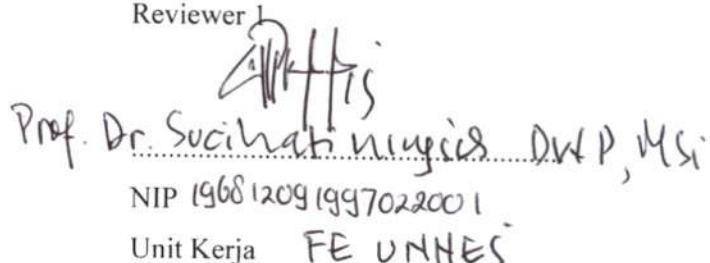 Reviewer 1
Prof. Dr. Sucihatiningsih DWP, MSi
NIP 196812091997022001
Unit Kerja FE UNNES